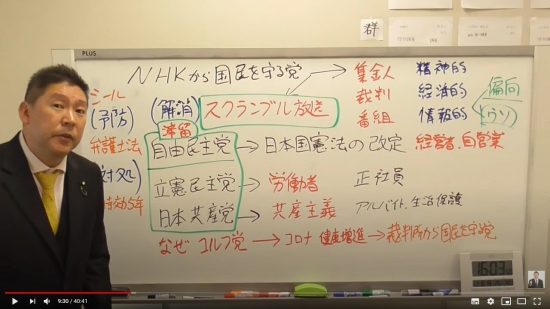 群
PLUS
NHKから国民を守る党
シール
(予防)
弁護士法
対処
時効5年
(解消)
スクランブル放送
集金人
裁判
番組
精神的
経済的
情報的
偏向
(ウソ)
滞留
自由民主党→日本国憲法の改定
経営者、自営業
立憲民主党→労働者 正社員
日本共産党→共産主義 アルバイト、生活保護
なぜ ゴルフ党→コロナ 健康増進→裁判所から国民を守る党
16:03
9:30 / 40:41